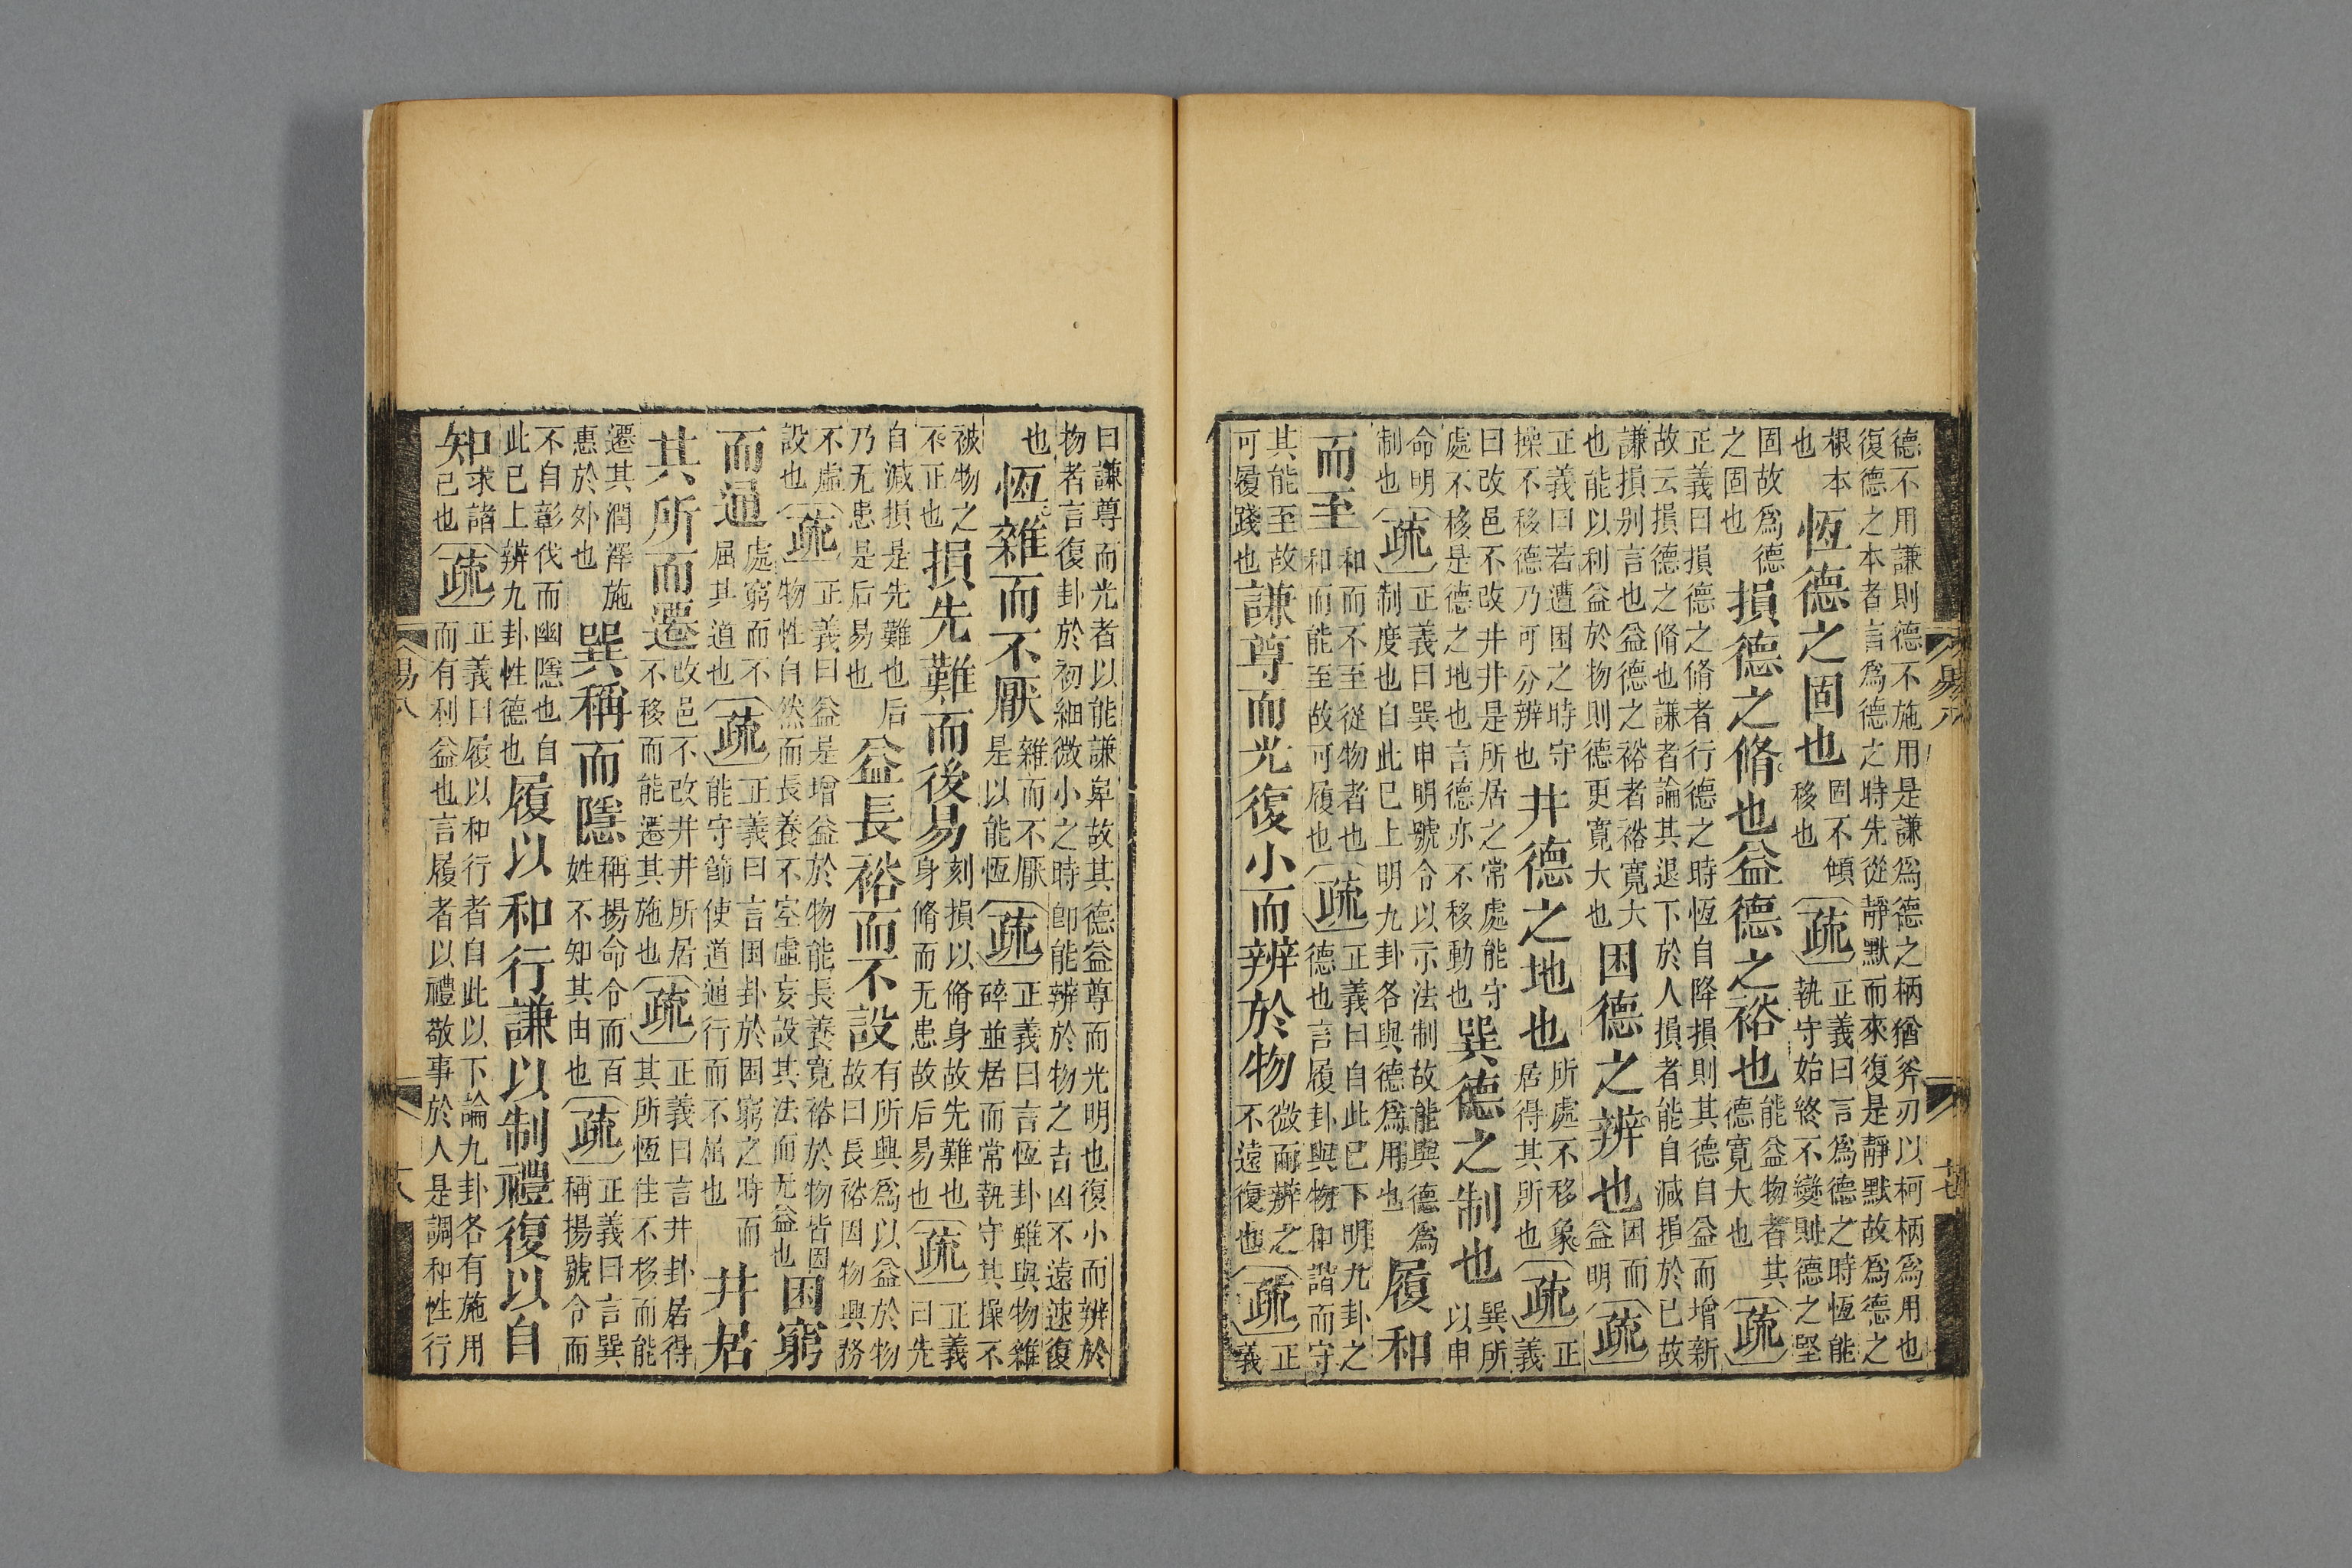 德不用謙則德不施用是謙爲德之柄猶斧刃以柯柄爲用也
復德之本者言爲德之時先從靜默而來復是靜默故爲德之
根本也恆德之固也固不傾移也疏正義曰言爲德之時恆能執守始終不變則德之堅
固故爲德之固也損德之脩也益德之裕也能益物者其德寬大也疏
正義曰損德之脩者行德之時恆自降損則其德自益而增新
故云損德之脩也謙者論其退下於人損者能自減損於已故
謙損别言也益德之裕者裕寬大也能以利益於物則德更寬大也困德之辨也困而益明疏
正義曰若遭困之時守操不移德乃可分辨也井德之地也所處不移象居得其所也疏正義
曰改邑不改井井是所居之常處能守處不移是德之地也言德亦不移動也巽德之制也巽所以申
命明制也疏正義曰巽申明號令以示法制故能與德爲制度也自此已上明九卦各與德爲用也履和
而至和而不至從物者也和而能至故可履也疏正義曰自此已下明九卦之德也言履卦與物和諧而守
其能至故可履踐也謙尊而光復小而辨於物微而辨之不遠復也疏正義
易八
曰謙尊而光者以能謙卑故其德益尊而光明也復小而辨於
物者言復卦於初細微小之時卽能辨於物之吉凶不遠速復
也恆雜而不厭雜而不厭是以能恆疏正義曰言恆卦雖與物雜碎並居而常執守其操不
被物之不正也損先難而後易刻損以脩身故先難也身脩而无患故后易也疏正義曰先
自減損是先難也后乃无患是后易也益長裕而不設有所興爲以益於物故曰長裕因物興務
不虛設也疏正義曰益是增益於物能長養寬裕於物皆因物性自然而長養不空虛妄設其法而无益也困窮
而通處窮而不屈其道也疏正義曰言困卦於困窮之時而能守節使道通行而不屈也井居
其所而遷改邑不改井井所居不移而能遷其施也疏正義曰言井卦居得其所恆住不移而能
遷其潤澤施惠於外也巽稱而隱稱揚命令而百姓不知其由也疏正義曰言巽稱揚號令而
不自彰伐而幽隱也自此已上辨九卦性德也履以和行謙以制禮復以自
知求諸已也疏正義曰履以和行者自此以下論九卦各有施用而有利益也言履者以禮敬事於人是調和性行
易八